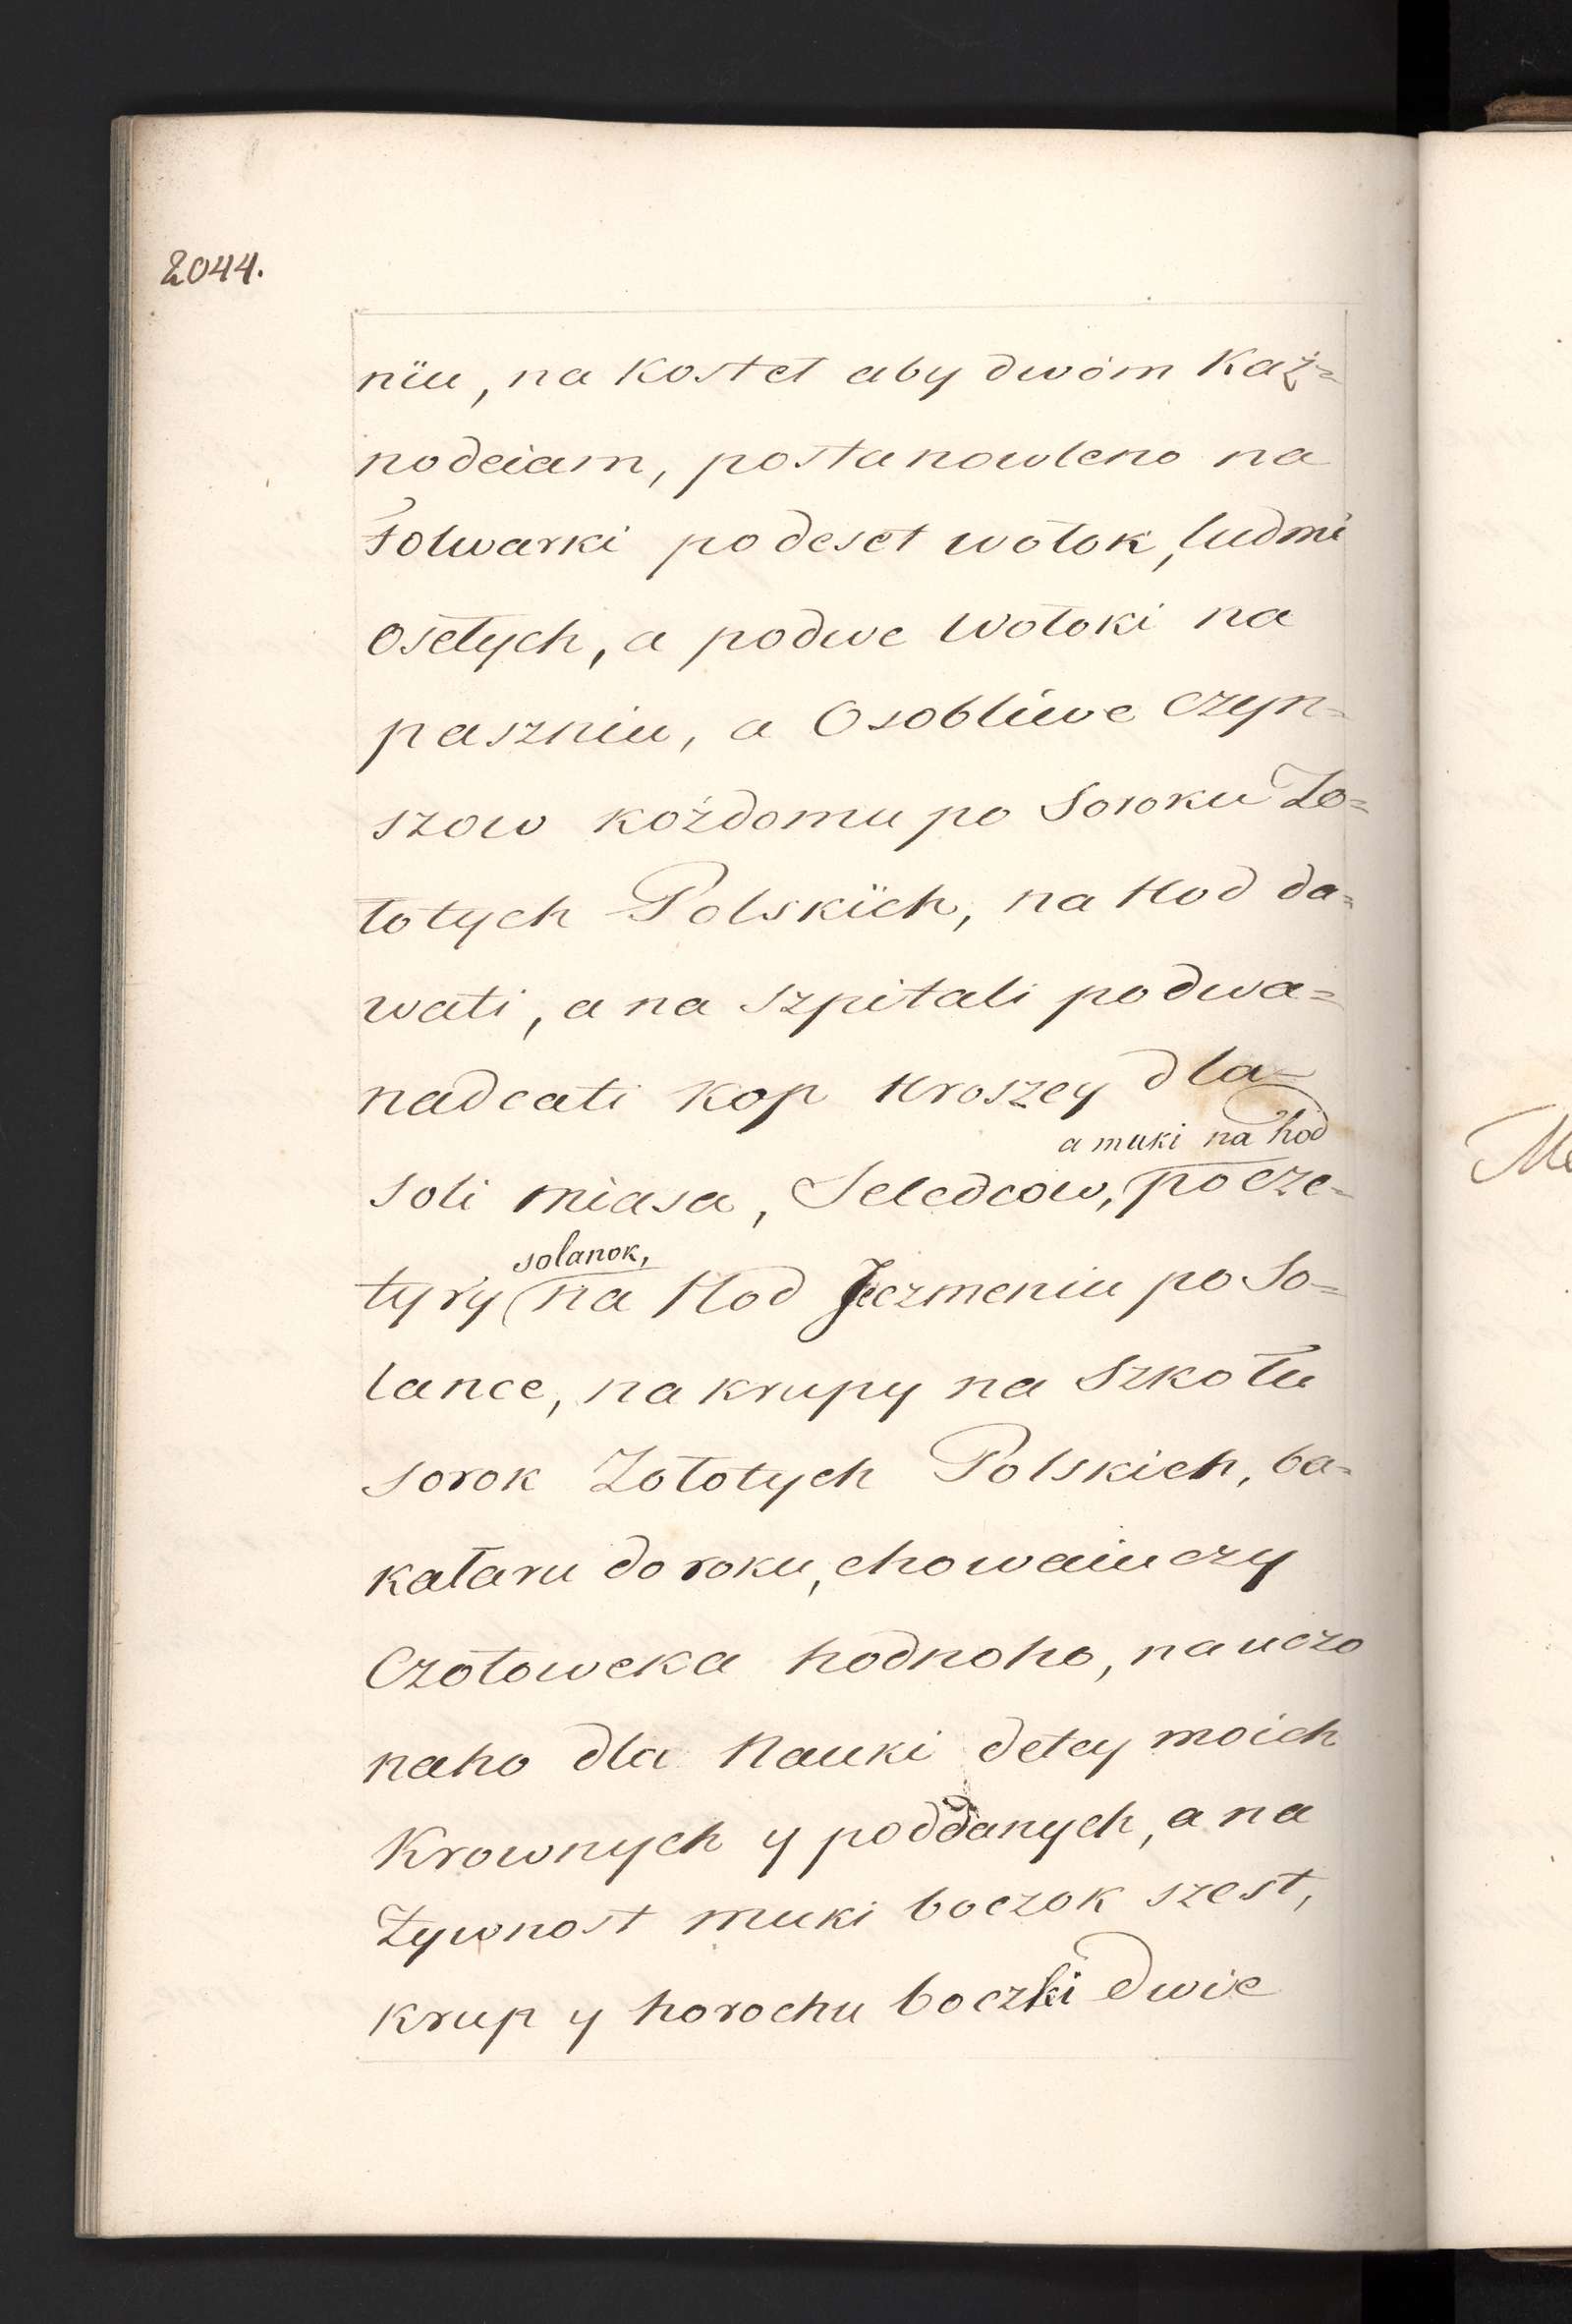 2044.
niu, na Kosteł aby dwóm Każ=
nodeiam, postanowleno na
Folwarki po deset wołok, ludmi
Osełych, a podwe Wołoki na
paszniu, a Osobliwe czyn=
szow kożdomu po Soroku Zo=
łotych Polskich, na Hod da=
wati, a na Szpitali podwa=
nadcati kop Hroszey dla
a muki na hod
soli miasa, Seledcow, po cze=
solanok,
tyry na Hod Jeczmeniu po So=
lance, na krupy na Szkołu
sorok Zołotych Polskich, ba=
kałaru do roku, chowaiuczy
Czołoweka hodnoho, nauczo
naho dla Nauki detey moich
Krownych y poddanych, a na
Żywnost muki boczok szest,
krup y horochu boczki dwie
Me